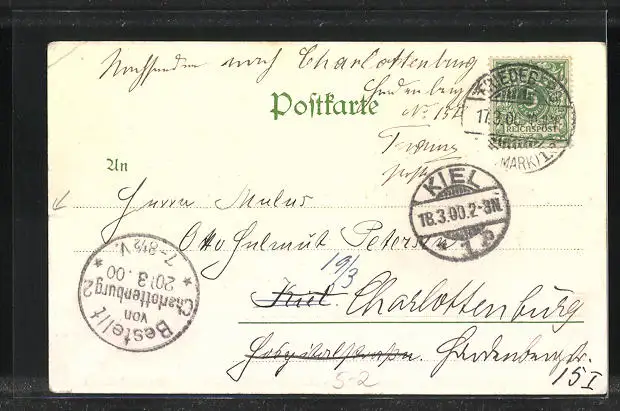 Nachsenden nach Charlottenburg
Hardenberg
No 15 I
Postkarte
REICHSPOST
17.3.00
(MARK) 1.
An
KIEL
18.3.00.2-3N.
1.
Herrn Maler
Otto Helmut Petersen
19/3
Kiel Charlottenburg
Hospitalstrasse. Hardenbergstr.
15 I
5-2
Bestellt
von
Charlottenburg 2
20.3.00
7-8½ V.